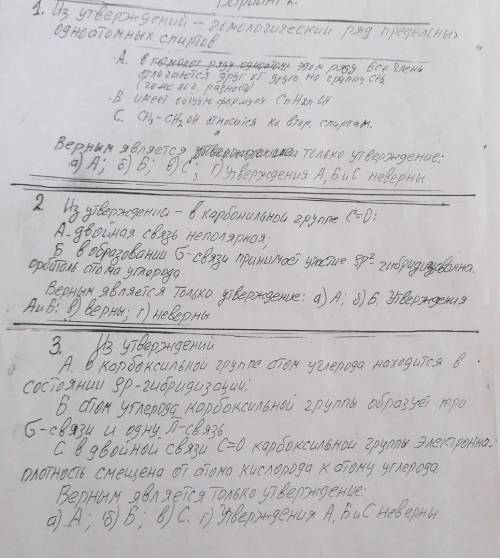 Вариант 2.
1. Из утверждений – гомологический ряд предельных
одноатомных спиртов
А. в этом ряду все члены
отличаются друг от друга на группу CH2
(гомолог. разность)
В имеет общую формулу CnH2n OH
С. CH3-CH2OH относится ко втор. спиртам.
Верным является только утверждение:
а) А; б) Б; в) С; г) Утверждения А, Б и С неверны
2 Из утверждений – в карбонильной группе C=O:
А-двойная связь неполярная;
Б в образовании G-связи принимает участие SP²-гибридизованна-
орбиталь атома углерода
Верным является только утверждение: а) А; б) Б. Утверждения
А и Б: в) верны; г) неверны
3. Из утверждений
А. в карбоксильной группе атом углерода находится в
состоянии SP-гибридизации;
Б атом углерода карбоксильной группы образует три
G-связи и одну П-связь
С в двойной связи C=O карбоксильной группы электронна-
плотность смещена от атома кислорода к атому углерода
Верным является только утверждение:
а) А; б) Б; в) С. г) Утверждения А, Б и С неверны